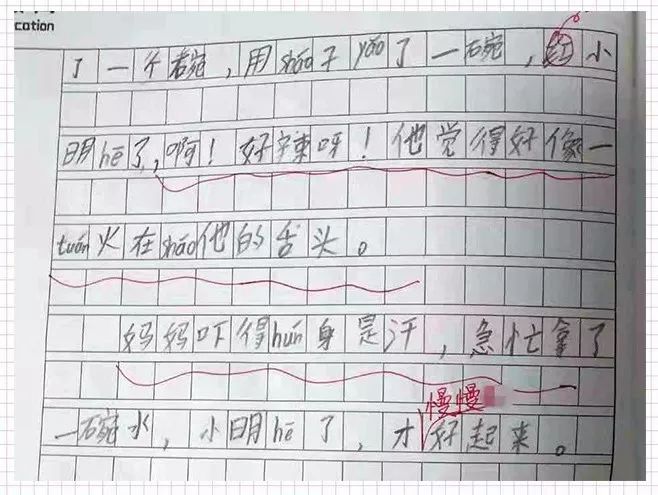 cation
了一个碗，用sháo子yǎo了一碗，红小
明hē了，啊！好辣呀！他觉得好像一
tuán火在shāo他的舌头。
妈妈吓得hún身是汗，急忙拿了
慢慢
一碗水，小明hē了，才好起来。